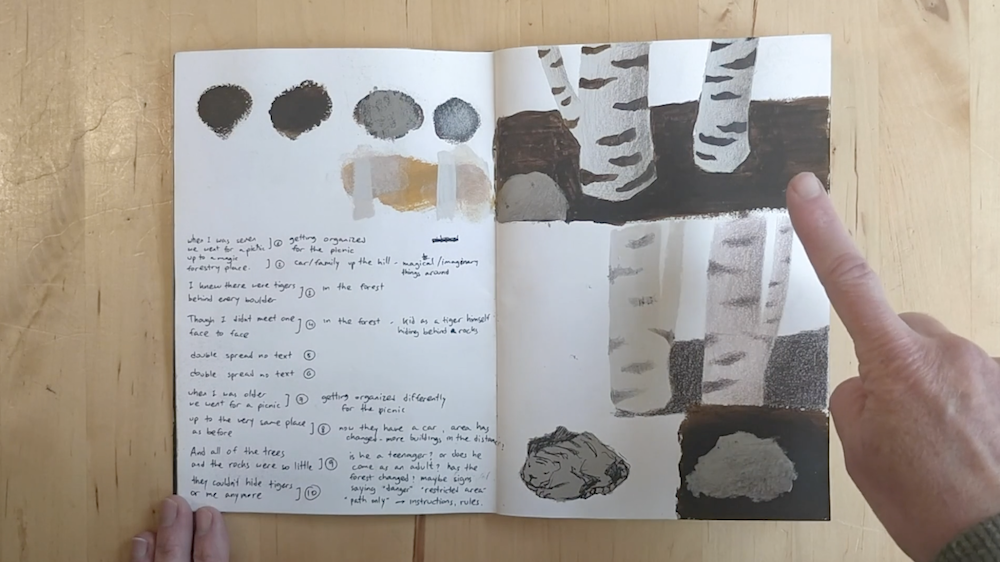 when I was seven
we went for a picnic
up to a magic
forestry place.
] ② getting organized
for the picnic
] ③ car/family up the hill - magical/imaginary
things around
I knew there were tigers
behind every boulder
] ③ in the forest
Though I didnt meet one
face to face
] ④ in the forest - kid as a tiger himself
hiding behind rocks
double spread no text ⑤
double spread no text ⑥
when I was older
we went for a picnic
] ⑦ getting organized differently
for the picnic
up to the very same place
as before
] ⑧ now they have a car, area has
changed - more buildings in the distance,
And all of the trees
and the rocks were so little
] ⑨ is he a teenager? or does he
come as an adult? has the
forest changed? maybe signs
saying "danger" "restricted area"
"path only" → instructions, rules.
they couldn't hide tigers
or me anymore
] ⑩